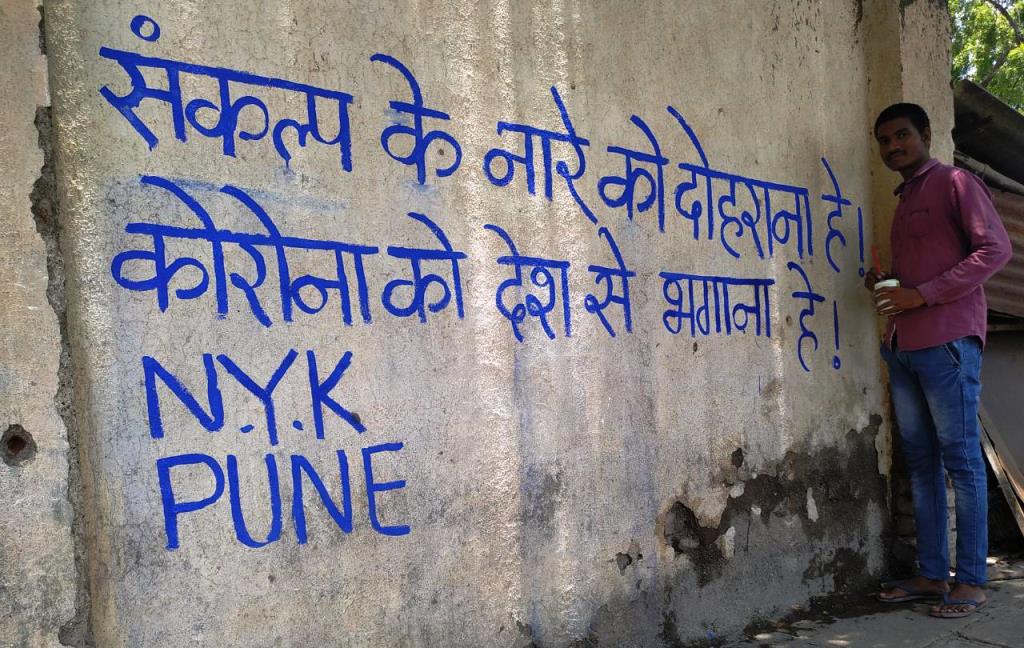 संकल्प के नारे को दोहराना हे!
कोरोना को देश से भगाना हे!
N.Y.K
PUNE